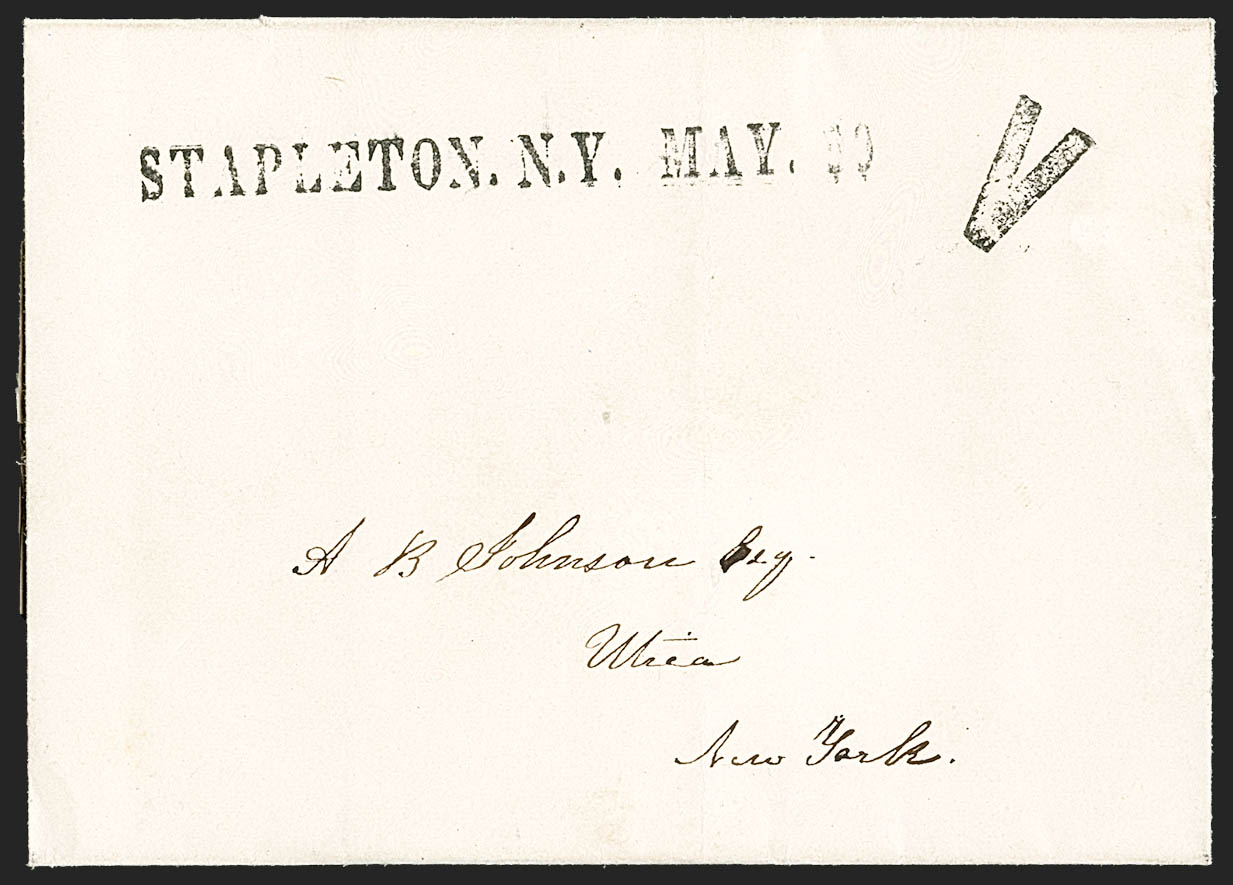 STAPLETON. N.Y. MAY.
V
A B Johnson Esq.
Utica
New York.